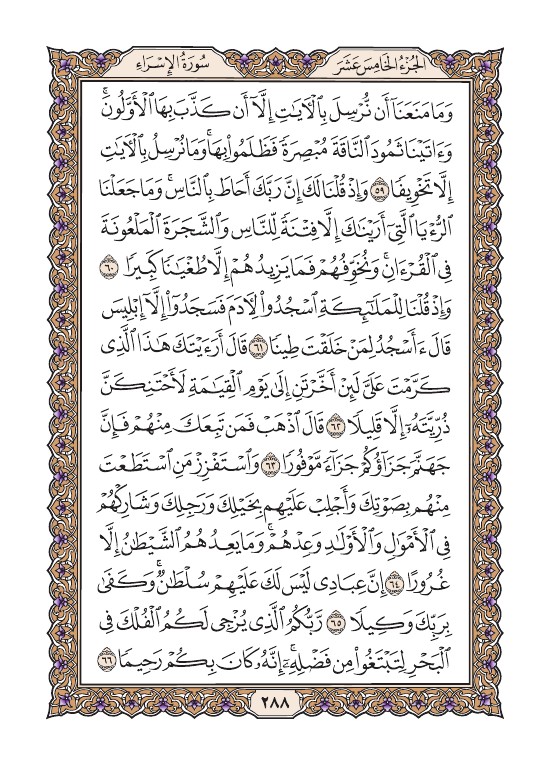 الجُزْءُ الخَامِسَ عَشَرَ
سُورَةُ الإِسْرَاءِ
وَمَا مَنَعَنَآ أَن نُّرْسِلَ بِٱلْـَٔايَٰتِ إِلَّآ أَن كَذَّبَ بِهَا ٱلْأَوَّلُونَۚ
وَءَاتَيْنَا ثَمُودَ ٱلنَّاقَةَ مُبْصِرَةً فَظَلَمُوا۟ بِهَاۚ وَمَا نُرْسِلُ بِٱلْـَٔايَٰتِ
إِلَّا تَخْوِيفًا ٥٩ وَإِذْ قُلْنَا لَكَ إِنَّ رَبَّكَ أَحَاطَ بِٱلنَّاسِۚ وَمَا جَعَلْنَا
ٱلرُّءْيَا ٱلَّتِىٓ أَرَيْنَٰكَ إِلَّا فِتْنَةً لِّلنَّاسِ وَٱلشَّجَرَةَ ٱلْمَلْعُونَةَ
فِى ٱلْقُرْءَانِۚ وَنُخَوِّفُهُمْ فَمَا يَزِيدُهُمْ إِلَّا طُغْيَٰنًا كَبِيرًا ٦٠
وَإِذْ قُلْنَا لِلْمَلَٰٓئِكَةِ ٱسْجُدُوا۟ لِـَٔادَمَ فَسَجَدُوٓا۟ إِلَّآ إِبْلِيسَ
قَالَ ءَأَسْجُدُ لِمَنْ خَلَقْتَ طِينًا ٦١ قَالَ أَرَءَيْتَكَ هَٰذَا ٱلَّذِى
كَرَّمْتَ عَلَىَّ لَئِنْ أَخَّرْتَنِ إِلَىٰ يَوْمِ ٱلْقِيَٰمَةِ لَأَحْتَنِكَنَّ
ذُرِّيَّتَهُۥٓ إِلَّا قَلِيلًا ٦٢ قَالَ ٱذْهَبْ فَمَن تَبِعَكَ مِنْهُمْ فَإِنَّ
جَهَنَّمَ جَزَآؤُكُمْ جَزَآءً مَّوْفُورًا ٦٣ وَٱسْتَفْزِزْ مَنِ ٱسْتَطَعْتَ
مِنْهُم بِصَوْتِكَ وَأَجْلِبْ عَلَيْهِم بِخَيْلِكَ وَرَجِلِكَ وَشَارِكْهُمْ
فِى ٱلْأَمْوَٰلِ وَٱلْأَوْلَٰدِ وَعِدْهُمْۚ وَمَا يَعِدُهُمُ ٱلشَّيْطَٰنُ إِلَّا
غُرُورًا ٦٤ إِنَّ عِبَادِى لَيْسَ لَكَ عَلَيْهِمْ سُلْطَٰنٌۚ وَكَفَىٰ
بِرَبِّكَ وَكِيلًا ٦٥ رَّبُّكُمُ ٱلَّذِى يُزْجِى لَكُمُ ٱلْفُلْكَ فِى
ٱلْبَحْرِ لِتَبْتَغُوا۟ مِن فَضْلِهِۦٓۚ إِنَّهُۥ كَانَ بِكُمْ رَحِيمًا ٦٦
٢٨٨